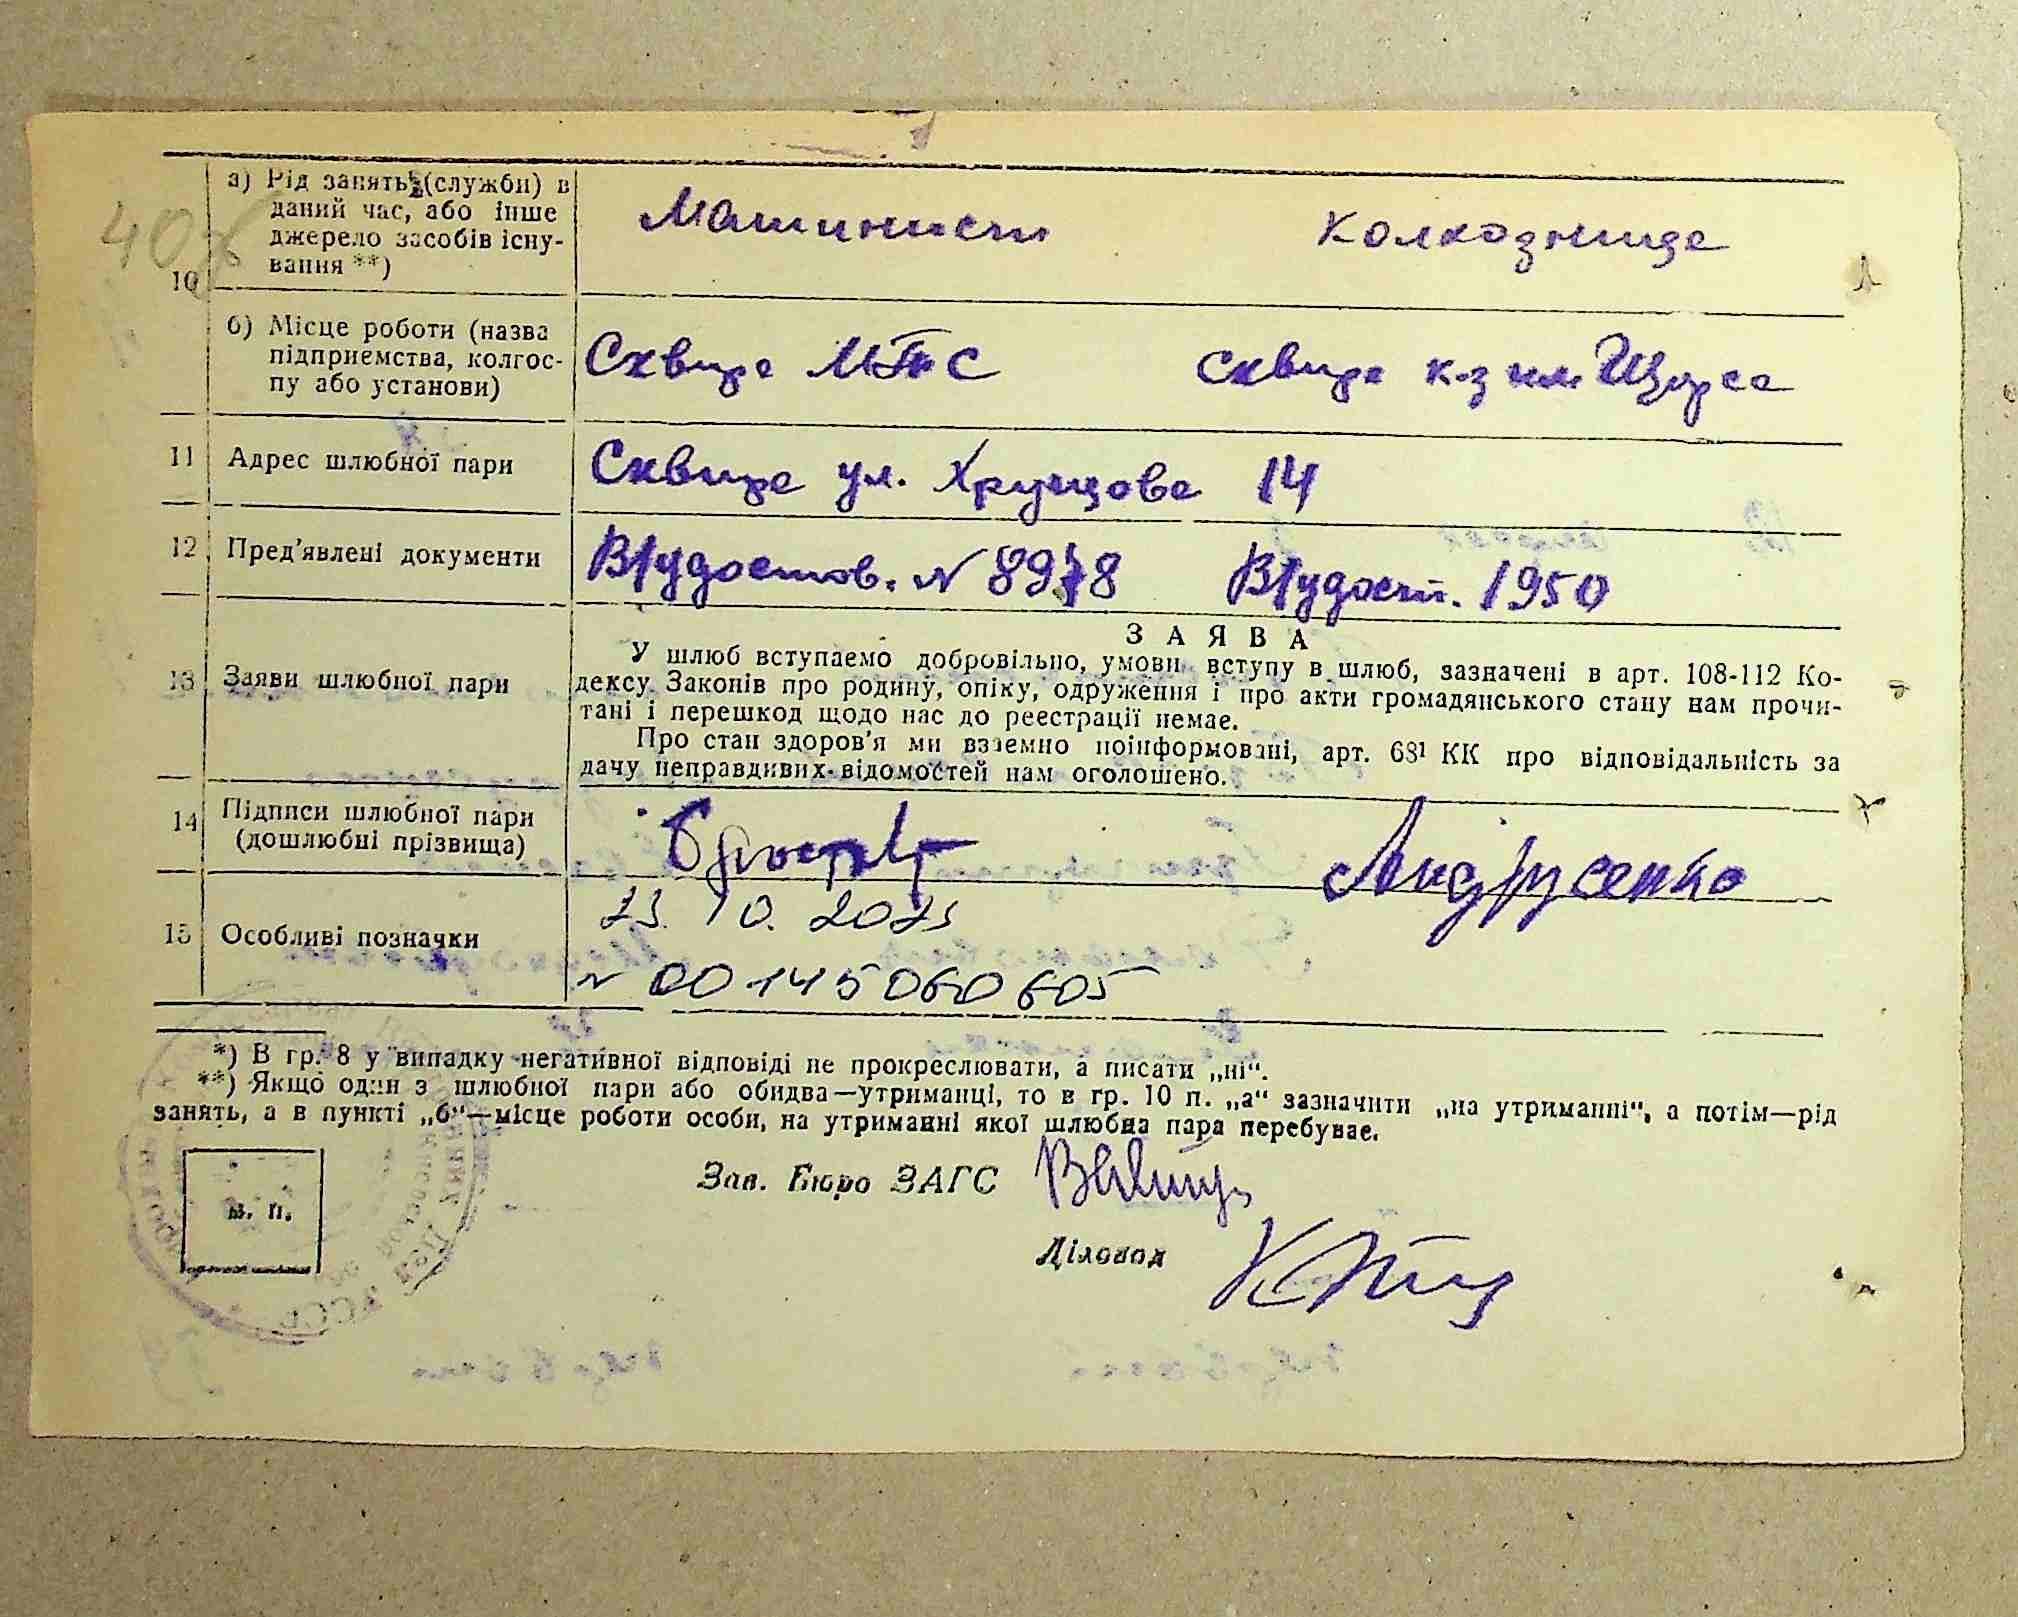 40
а) Рід занять (служби) в
даний час, або інше
джерело засобів існу-
вання **)
Машинист колхозница
10
б) Місце роботи (назва
підприемства, колгос-
пу або установи)
Сквира МТС сквира к-з им Щорса
11 Адрес шлюбної пари
Сквира ул. Хрущова 14
12 Пред'явлені документи
В/удостов. N 8978 В/удост. 1950
13 Заяви шлюбної пари
ЗАЯВА
У шлюб вступаемо добровільно, умови вступу в шлюб, зазначені в арт. 108-112 Ко-
дексу Законів про родину, опіку, одруження і про акти громадянського стану нам прочи-
тані і перешкод щодо нас до реестрації немае.
Про стан здоров'я ми взаемно поінформовані, арт. 68¹ КК про відповідальність за
дачу неправдивих відомостей нам оголошено.
14 Підписи шлюбної пари
(дошлюбні прізвища)
Андрусенко
15 Особливі позначки
23.10.2023
N 00145060605
*) В гр. 8 у випадку негативної відповіді не прокреслювати, а писати „ні“.
**) Якщо один з шлюбної пари або обидва—утриманці, то в гр. 10 п. „а“ зазначити „на утриманні“, а потім—рід
занять, а в пункті „б“—місце роботи особи, на утриманні якої шлюбна пара перебувае.
Зав. Бюро ЗАГС
м. п.
Діловод